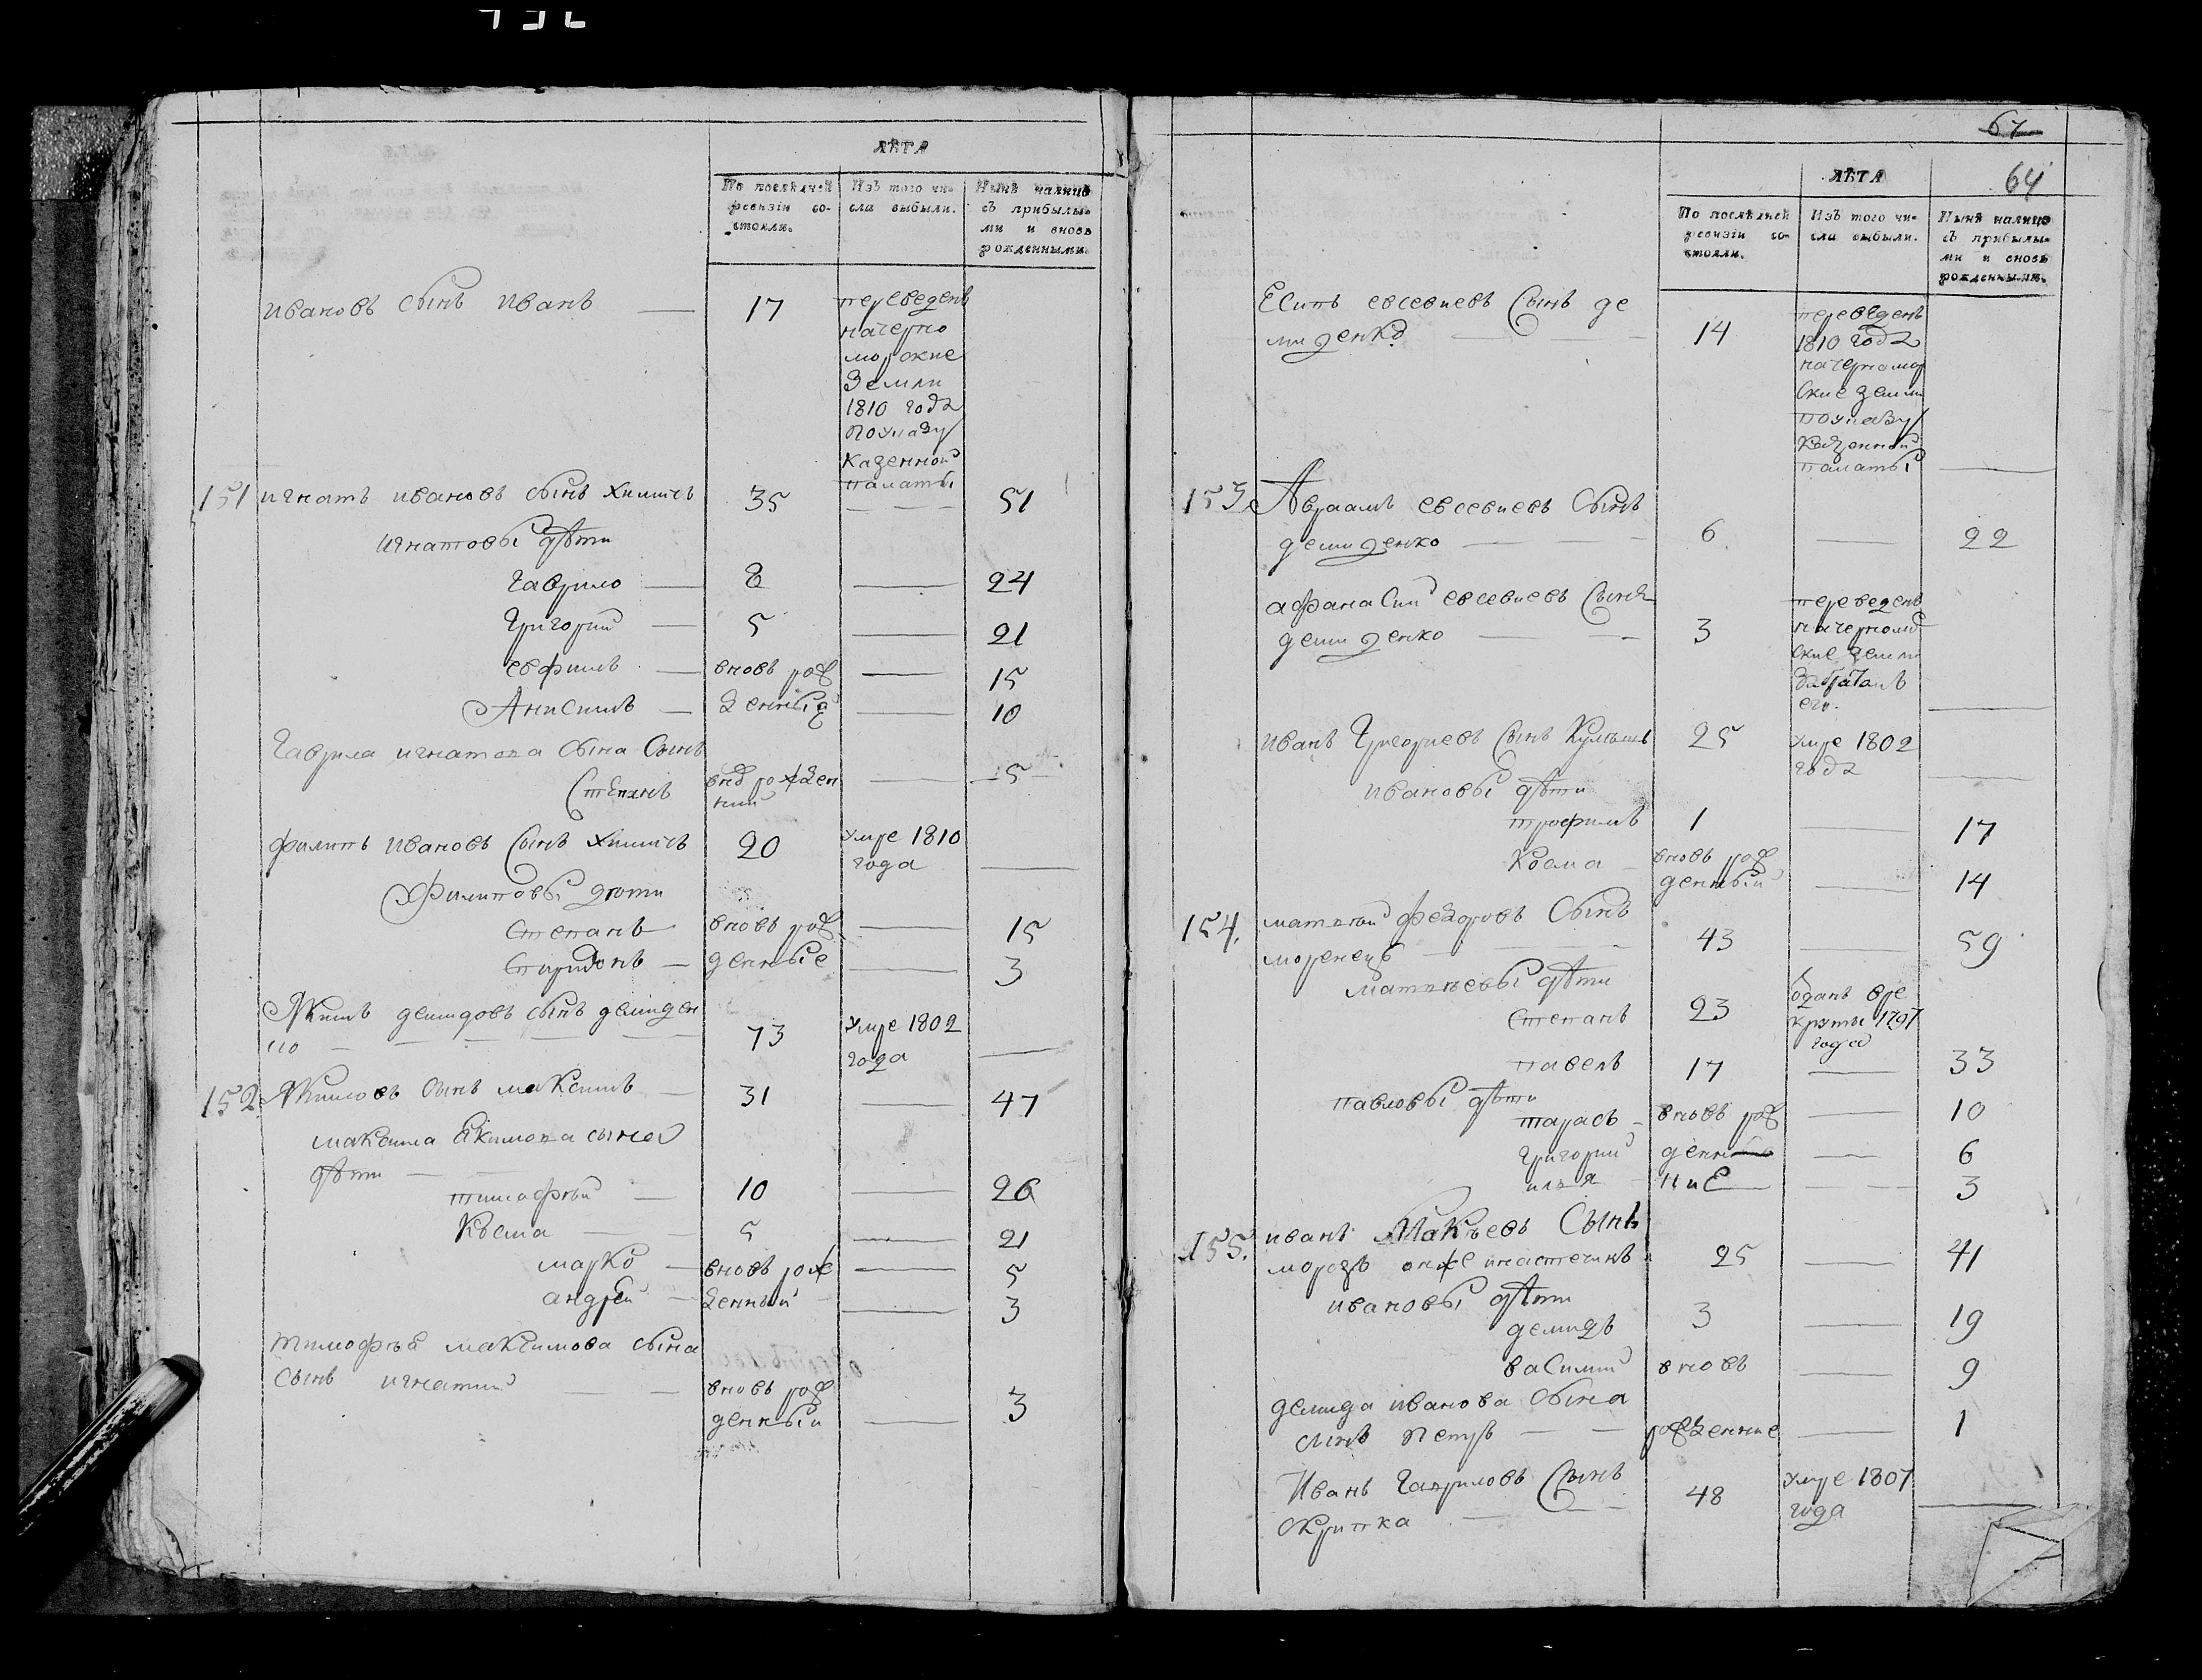 ЛѢТА
По послѣдней Изъ того чи- Нынѣ налицо
ревизіи со- сла выбыли. съ прибылы-
стояли. ми и вновь
рожденными.
ивановъ сынъ иванъ — 17 переведенъ
на черно
морские
Земли
1810 года
по указу
казенной
палаты
151 игнатъ ивановъ сынъ 35 — 51
игнатовы дѣти
гаврило — 8 — 24
григорий — 5 — 21
ефимъ — вновь рож — 15
Анисимъ — денныя — 10
гаврила игнатова сына сынъ
Степанъ вновь рожден — 5
ний
филипъ ивановъ сынъ 20 умре 1810
года —
Филиповы дѣти
Степанъ вновь рож — 15
Спиридонъ — денные — 3
Якимъ демидовъ сынъ демиден
ко — 73 умре 1802
года —
152. Якимовъ сынъ максимъ — 31 — 47
максима Екимова сына
дѣти —
тимофѣй — 10 — 26
Косма — 5 — 21
марко — вновь рож — 5
андрей — денный — 3
тимофѣя максимова сына
сынъ игнатий — вновь рож
денный — 3
67
64
ЛѢТА
По послѣдней Изъ того чи- Нынѣ налицо
ревизіи со- сла выбыли. съ прибылы-
стояли. ми и вновь
рожденными.
Есипъ евсевиевъ Сынъ де
миденко — 14 переведенъ
1810 года
на черномор
ские земли
по указу
казенной
палаты —
153. Авраамъ евсевиевъ Сынъ
демиденко — 6 — 22
афанасий евсевиевъ Сынъ
демиденко — 3 переведенъ
на черномо
ские земли
за братомъ
его. —
иванъ Григориевъ Сынъ 25 умре 1802
года —
ивановы дѣти
трофимъ 1 — 17
Косма — вновь рож
денный — 14
154. матвѣй федоровъ Сынъ
моренецъ — 43 — 59
матвѣевы дѣти
Степанъ 23 одданъ вре
круты 1797
года
павелъ 17 — 33
павловы дѣти
тарасъ — вновь рож — 10
григорий денн — 6
илья ние — 3
155. иванъ Сынъ
морозъ онже 25 — 41
ивановы дѣти
демидъ 3 — 19
василий вновь — 9
демида иванова сына
сынъ петръ — рожденние — 1
Иванъ гавриловъ Сынъ 48 умре 1807
скрипка — года —